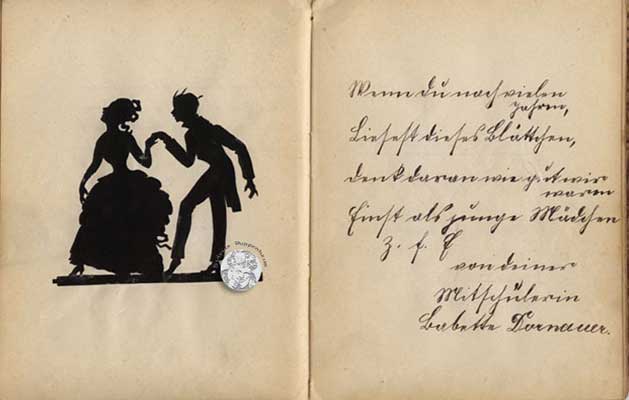 Wenn du nach vielen
Jahren,
Liesest dieses Blättchen,
Denk daran wie gut wir
waren
Einst als junge Mädchen
Z. f. E
von deiner
Mitschülerin
Babette Dornauer.